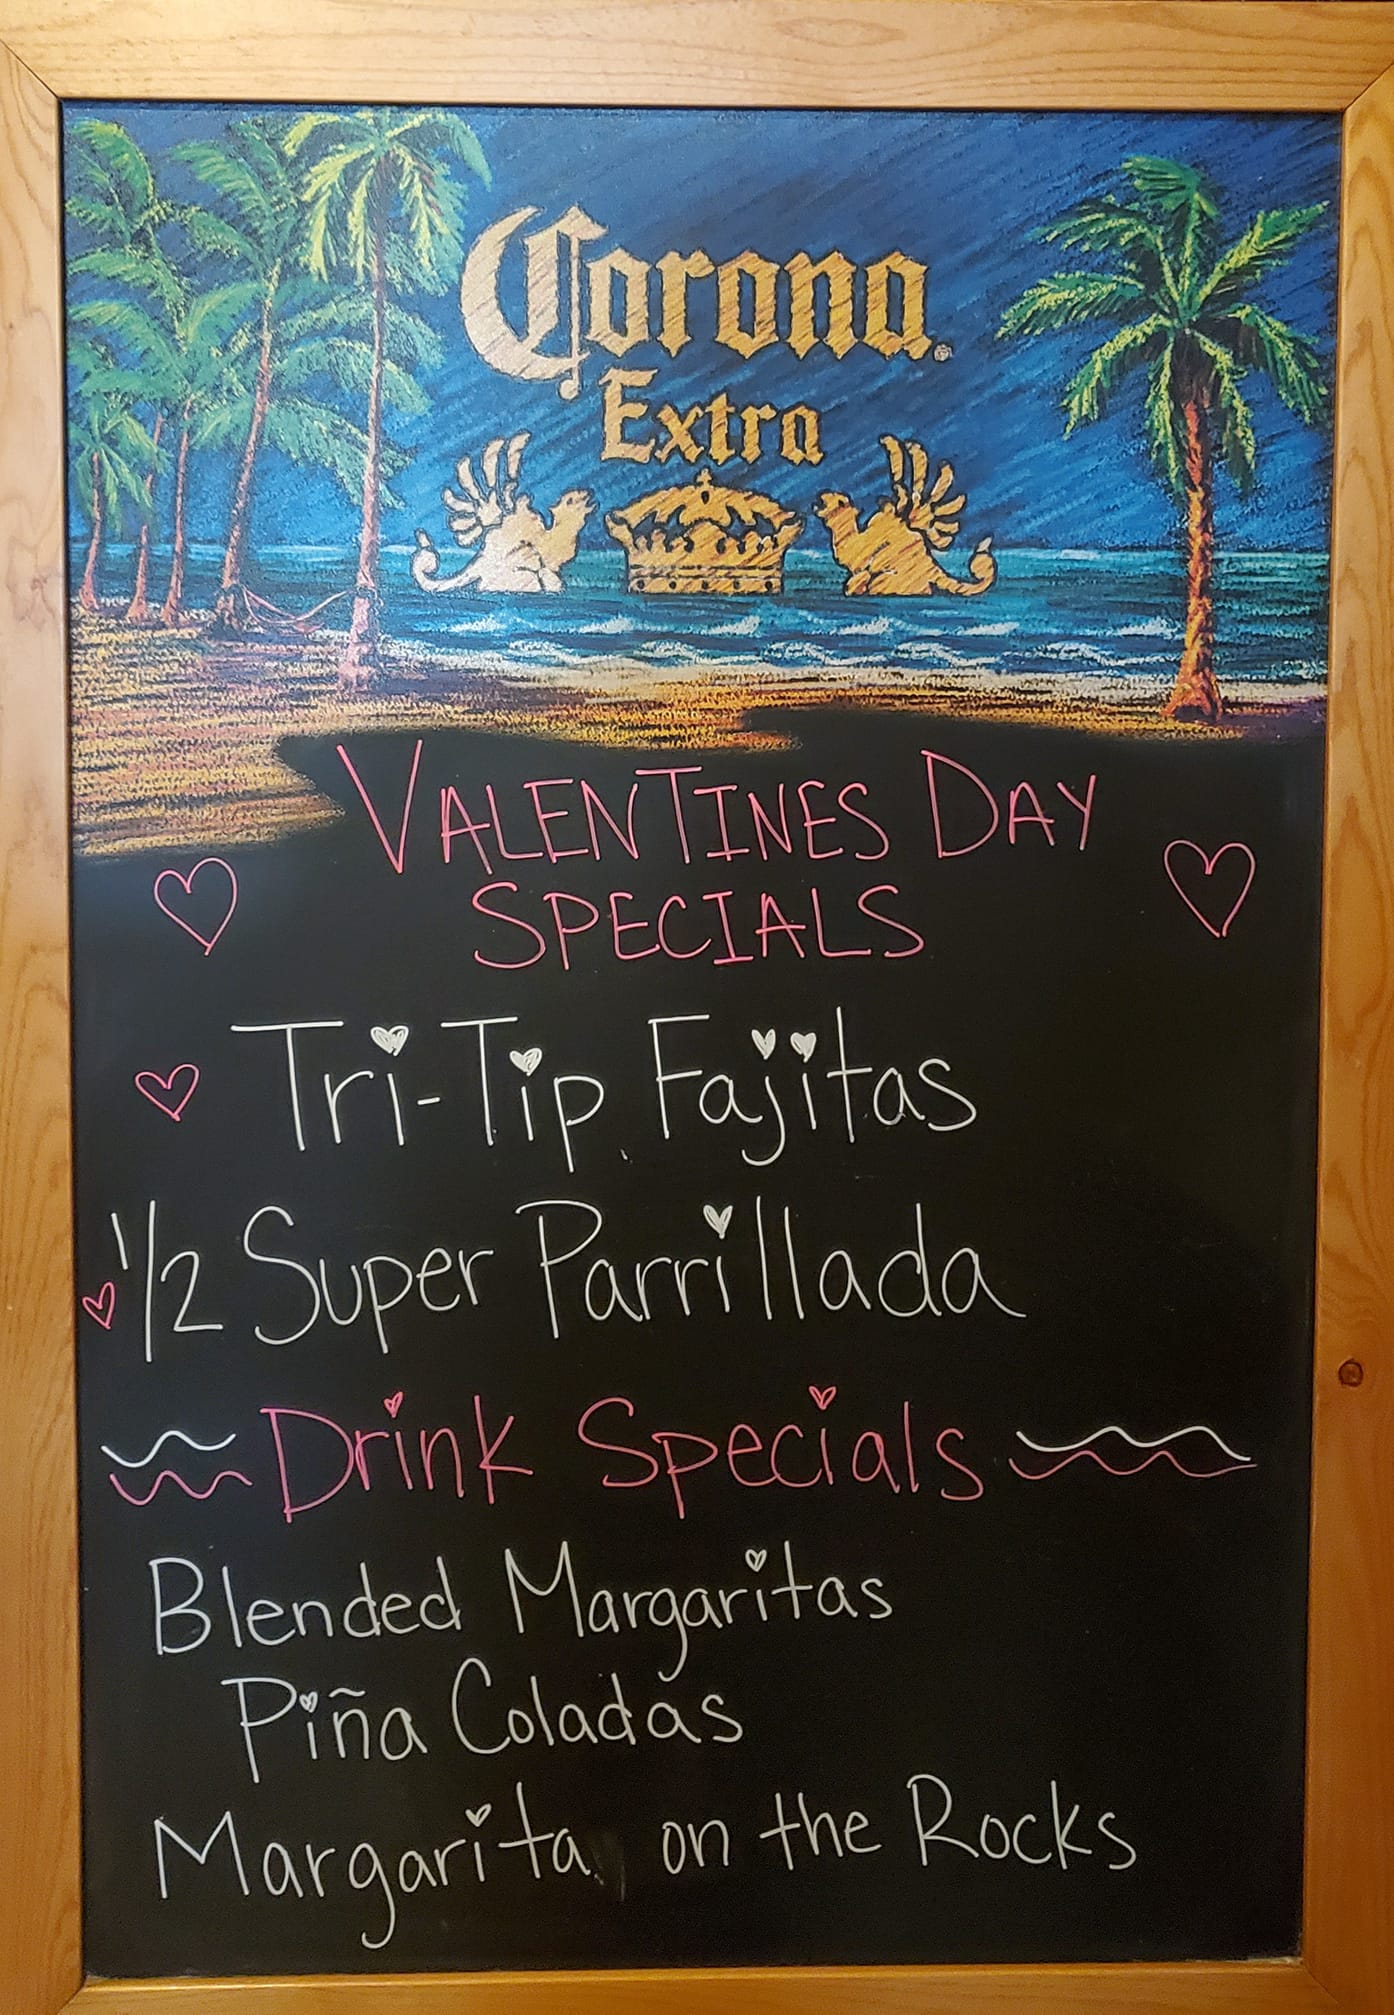 Corona
Extra
VALENTINES DAY
SPECIALS
Tri-Tip Fajitas
1/2 Super Parrillada
Drink Specials
Blended Margaritas
Piña Coladas
Margarita on the Rocks